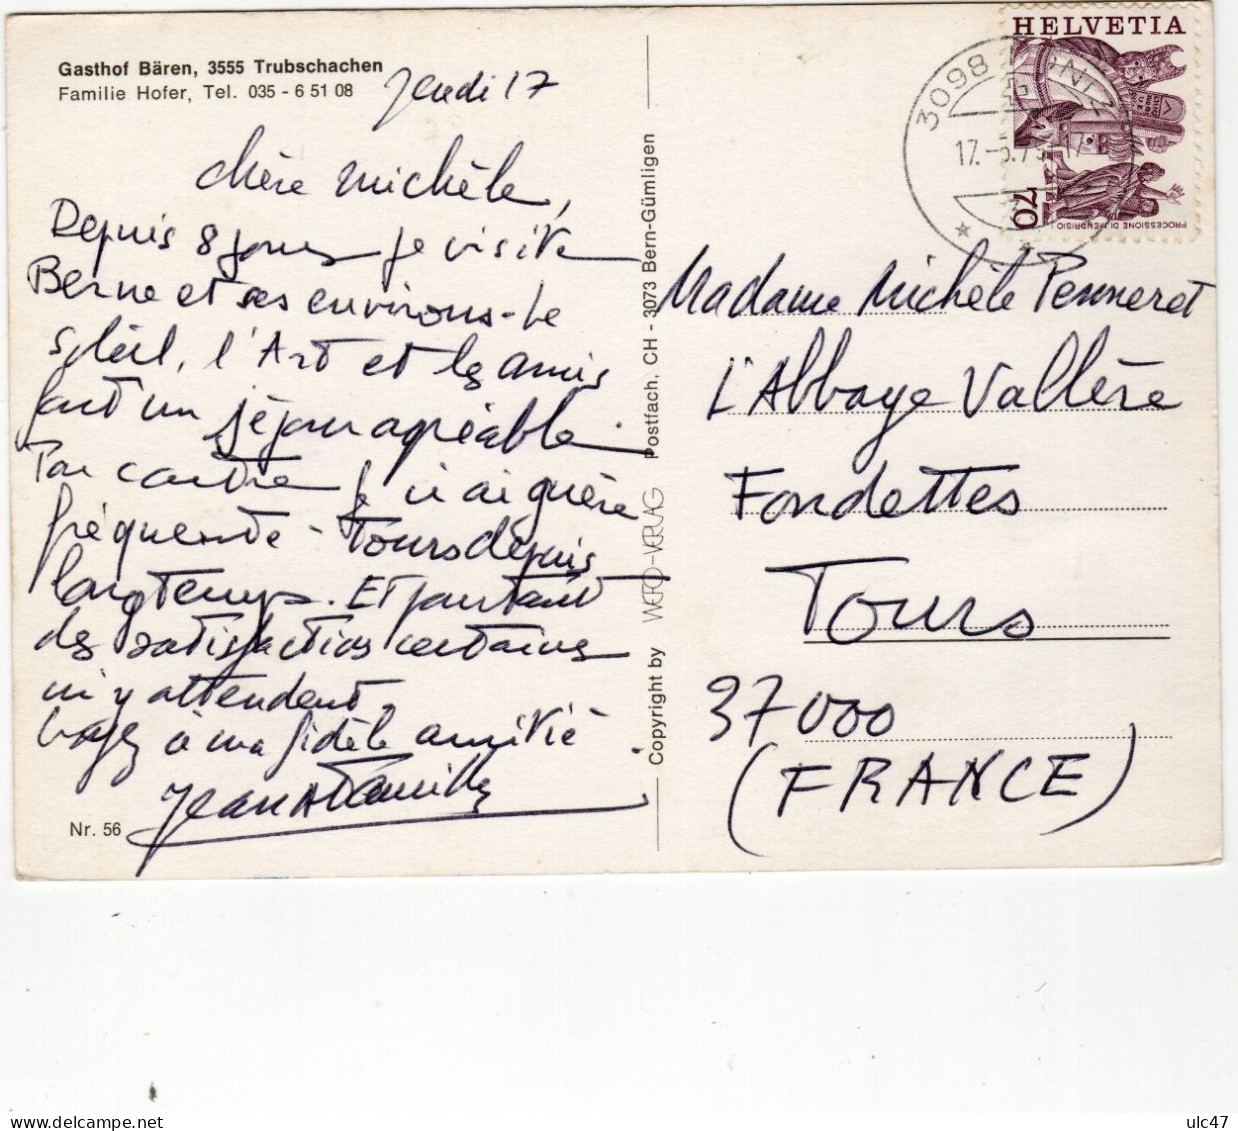 Gasthof Bären, 3555 Trubschachen
Familie Hofer, Tel. 035 - 6 51 08
Jeudi 17
chère Michèle,
Depuis 8 jours je visite
Berne et ses environs - Le
soleil, l'Art et les amis
font un séjour agréable.
Par contre je n'ai guère
fréquenté - Tours depuis
longtemps. Et pourtant
des satisfactions certaines
m'y attendent.
à ma fidèle amitié.
Jean
Nr. 56
Copyright by WEFO-VERLAG Postfach, CH - 3073 Bern-Gümligen
HELVETIA
70
PROCESSIONE DI MENDRISIO
3098
17.
Madame Michèle Penneret
L'Abbaye Vallère
Fondettes
Tours
37000
(FRANCE)
delcampe.net
ulc47